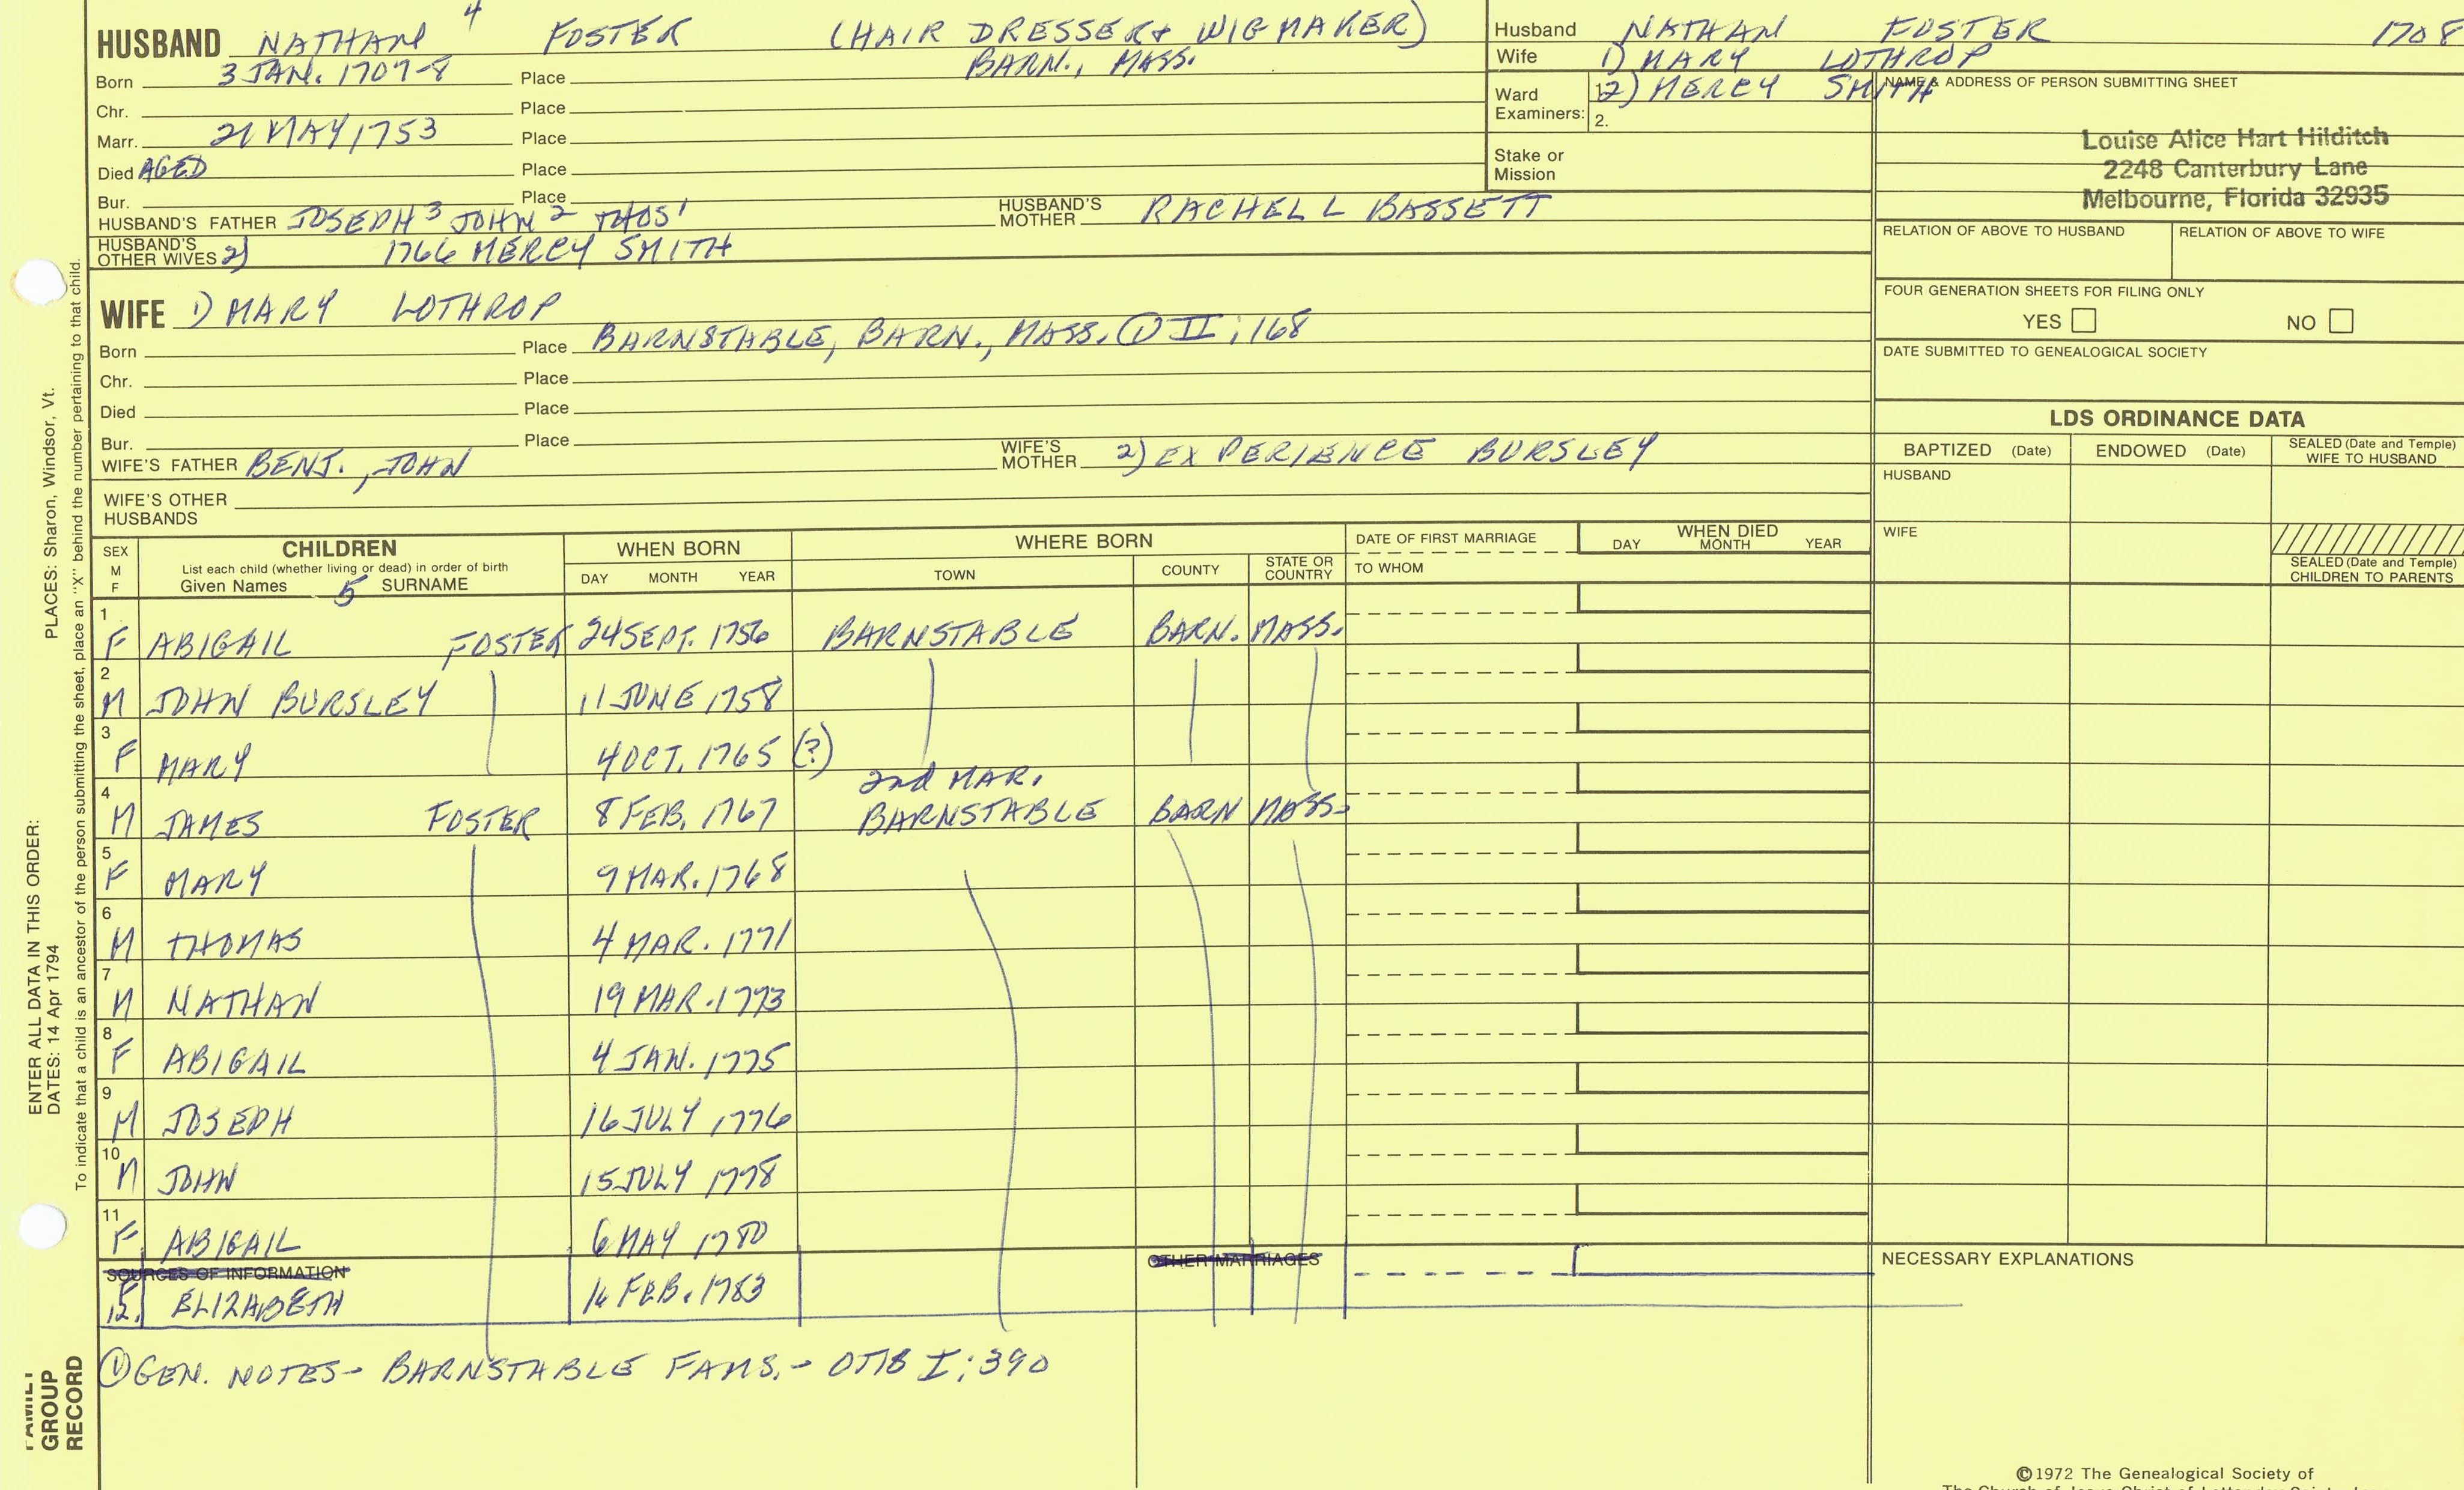 HUSBAND NATHAN 4 FOSTER (HAIR DRESSER & WIGMAKER)
Born 3 JAN. 1707-8 Place BARN., MASS.
Chr. Place
Marr. MAY, 1753 Place
Died AGED Place
Bur. Place
HUSBAND'S FATHER JOSEPH 3 JOHN 2 THOS 1 HUSBAND'S MOTHER RACHEL L BASSETT
HUSBAND'S OTHER WIVES 2) 1766 MERCY SMITH
WIFE 1) MARY LOTHROP
Born Place BARNSTABLE, BARN., MASS. ① II; 168
Chr. Place
Died Place
Bur. Place
WIFE'S FATHER BENJ., JOHN WIFE'S MOTHER 2) EXPERIENCE BURSLEY
WIFE'S OTHER HUSBANDS
Husband NATHAN FOSTER 1708
Wife 1) MARY LOTHROP
2) MERCY SMITH
Ward Examiners: 1. 2.
Stake or Mission
NAME & ADDRESS OF PERSON SUBMITTING SHEET
Louise Alice Hart Hilditch
2248 Canterbury Lane
Melbourne, Florida 32935
RELATION OF ABOVE TO HUSBAND RELATION OF ABOVE TO WIFE
FOUR GENERATION SHEETS FOR FILING ONLY
YES NO
DATE SUBMITTED TO GENEALOGICAL SOCIETY
LDS ORDINANCE DATA
BAPTIZED (Date) ENDOWED (Date) SEALED (Date and Temple) WIFE TO HUSBAND
HUSBAND
WIFE
SEALED (Date and Temple) CHILDREN TO PARENTS
SEX M F CHILDREN WHEN BORN WHERE BORN DATE OF FIRST MARRIAGE WHEN DIED
List each child (whether living or dead) in order of birth
Given Names 5 SURNAME DAY MONTH YEAR TOWN COUNTY STATE OR COUNTRY TO WHOM DAY MONTH YEAR
1 F ABIGAIL FOSTER 24 SEPT. 1756 BARNSTABLE BARN. MASS.
2 M JOHN BURSLEY 11 JUNE 1758
3 F MARY 4 OCT. 1765 (?)
2nd MAR.
4 M JAMES FOSTER 8 FEB. 1767 BARNSTABLE BARN MASS.
5 F MARY 9 MAR. 1768
6 M THOMAS 4 MAR. 1771
7 M NATHAN 19 MAR. 1773
8 F ABIGAIL 4 JAN. 1775
9 M JOSEPH 16 JULY 1776
10 M JOHN 15 JULY 1778
11 F ABIGAIL 6 MAY 1780
SOURCES OF INFORMATION OTHER MARRIAGES NECESSARY EXPLANATIONS
12. ELIZABETH FEB. 1783
① GEN. NOTES - BARNSTABLE FAMS. - OTIS I; 390
©1972 The Genealogical Society of
PLACES: Sharon, Windsor, Vt.
To indicate that a child is an ancestor of the person submitting the sheet, place an "X" behind the number pertaining to that child.
ENTER ALL DATA IN THIS ORDER:
DATES: 14 Apr 1794
FAMILY
GROUP
RECORD